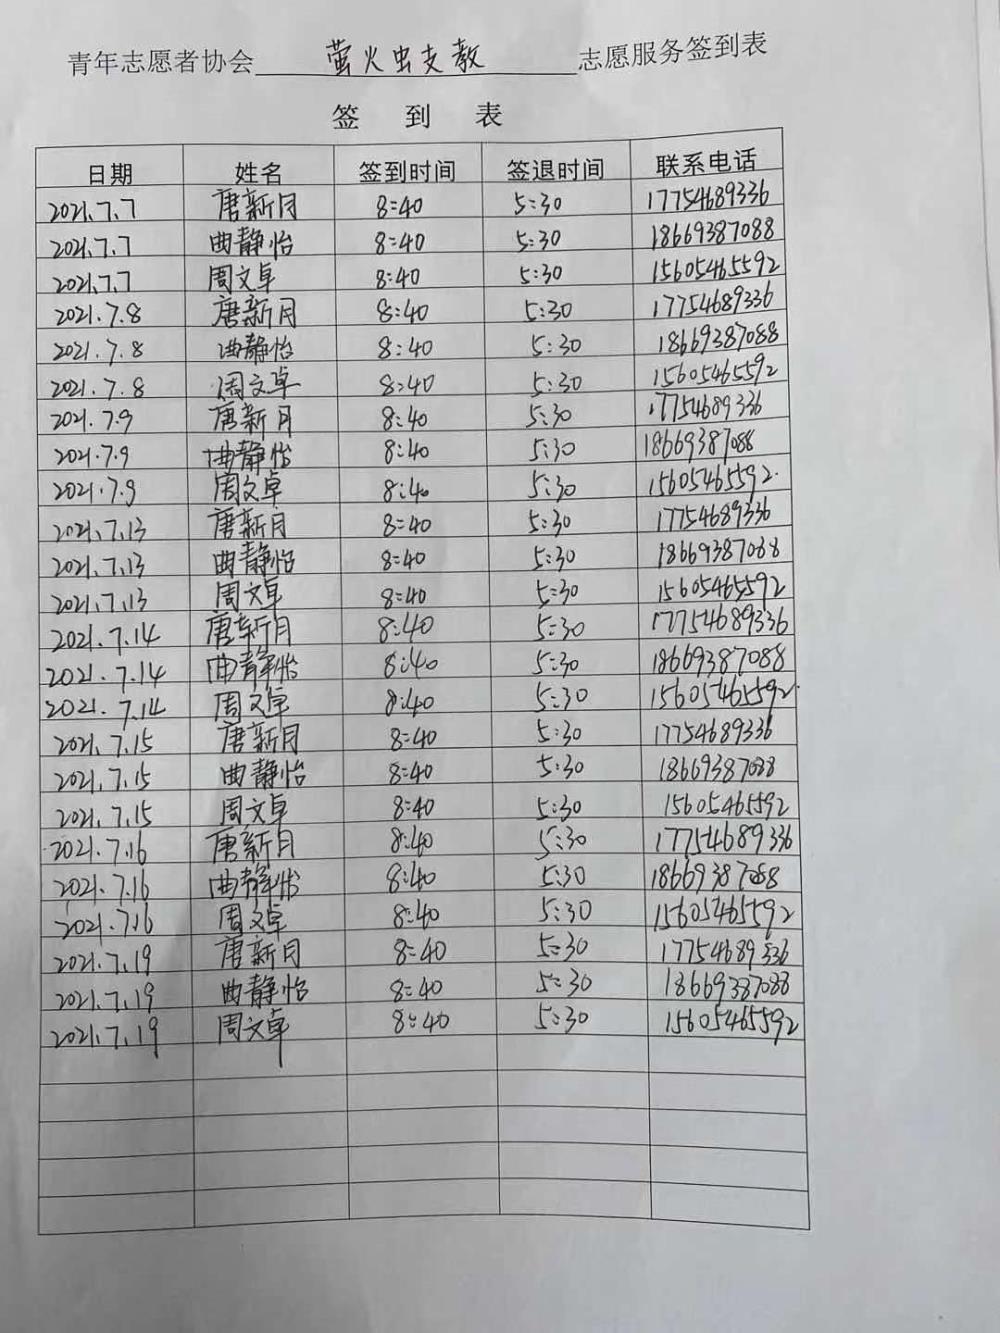 青年志愿者协会 萤火虫支教 志愿服务签到表
签 到 表
日期 姓名 签到时间 签退时间 联系电话
2021.7.7 唐新月 8:40 5:30 17754689336
2021.7.7 曲静怡 8:40 5:30 18669387088
2021.7.7 周文卓 8:40 5:30 15605465592
2021.7.8 唐新月 8:40 5:30 17754689336
2021.7.8 曲静怡 8:40 5:30 18669387088
2021.7.8 周文卓 8:40 5:30 15605465592
2021.7.9 唐新月 8:40 5:30 17754689336
2021.7.9 曲静怡 8:40 5:30 18669387088
2021.7.9 周文卓 8:40 5:30 15605465592
2021.7.13 唐新月 8:40 5:30 17754689336
2021.7.13 曲静怡 8:40 5:30 18669387088
2021.7.13 周文卓 8:40 5:30 15605465592
2021.7.14 唐新月 8:40 5:30 17754689336
2021.7.14 曲静怡 8:40 5:30 18669387088
2021.7.14 周文卓 8:40 5:30 15605465592
2021.7.15 唐新月 8:40 5:30 17754689336
2021.7.15 曲静怡 8:40 5:30 18669387088
2021.7.15 周文卓 8:40 5:30 15605465592
2021.7.16 唐新月 8:40 5:30 17754689336
2021.7.16 曲静怡 8:40 5:30 18669387088
2021.7.16 周文卓 8:40 5:30 15605465592
2021.7.19 唐新月 8:40 5:30 17754689336
2021.7.19 曲静怡 8:40 5:30 18669387088
2021.7.19 周文卓 8:40 5:30 15605465592